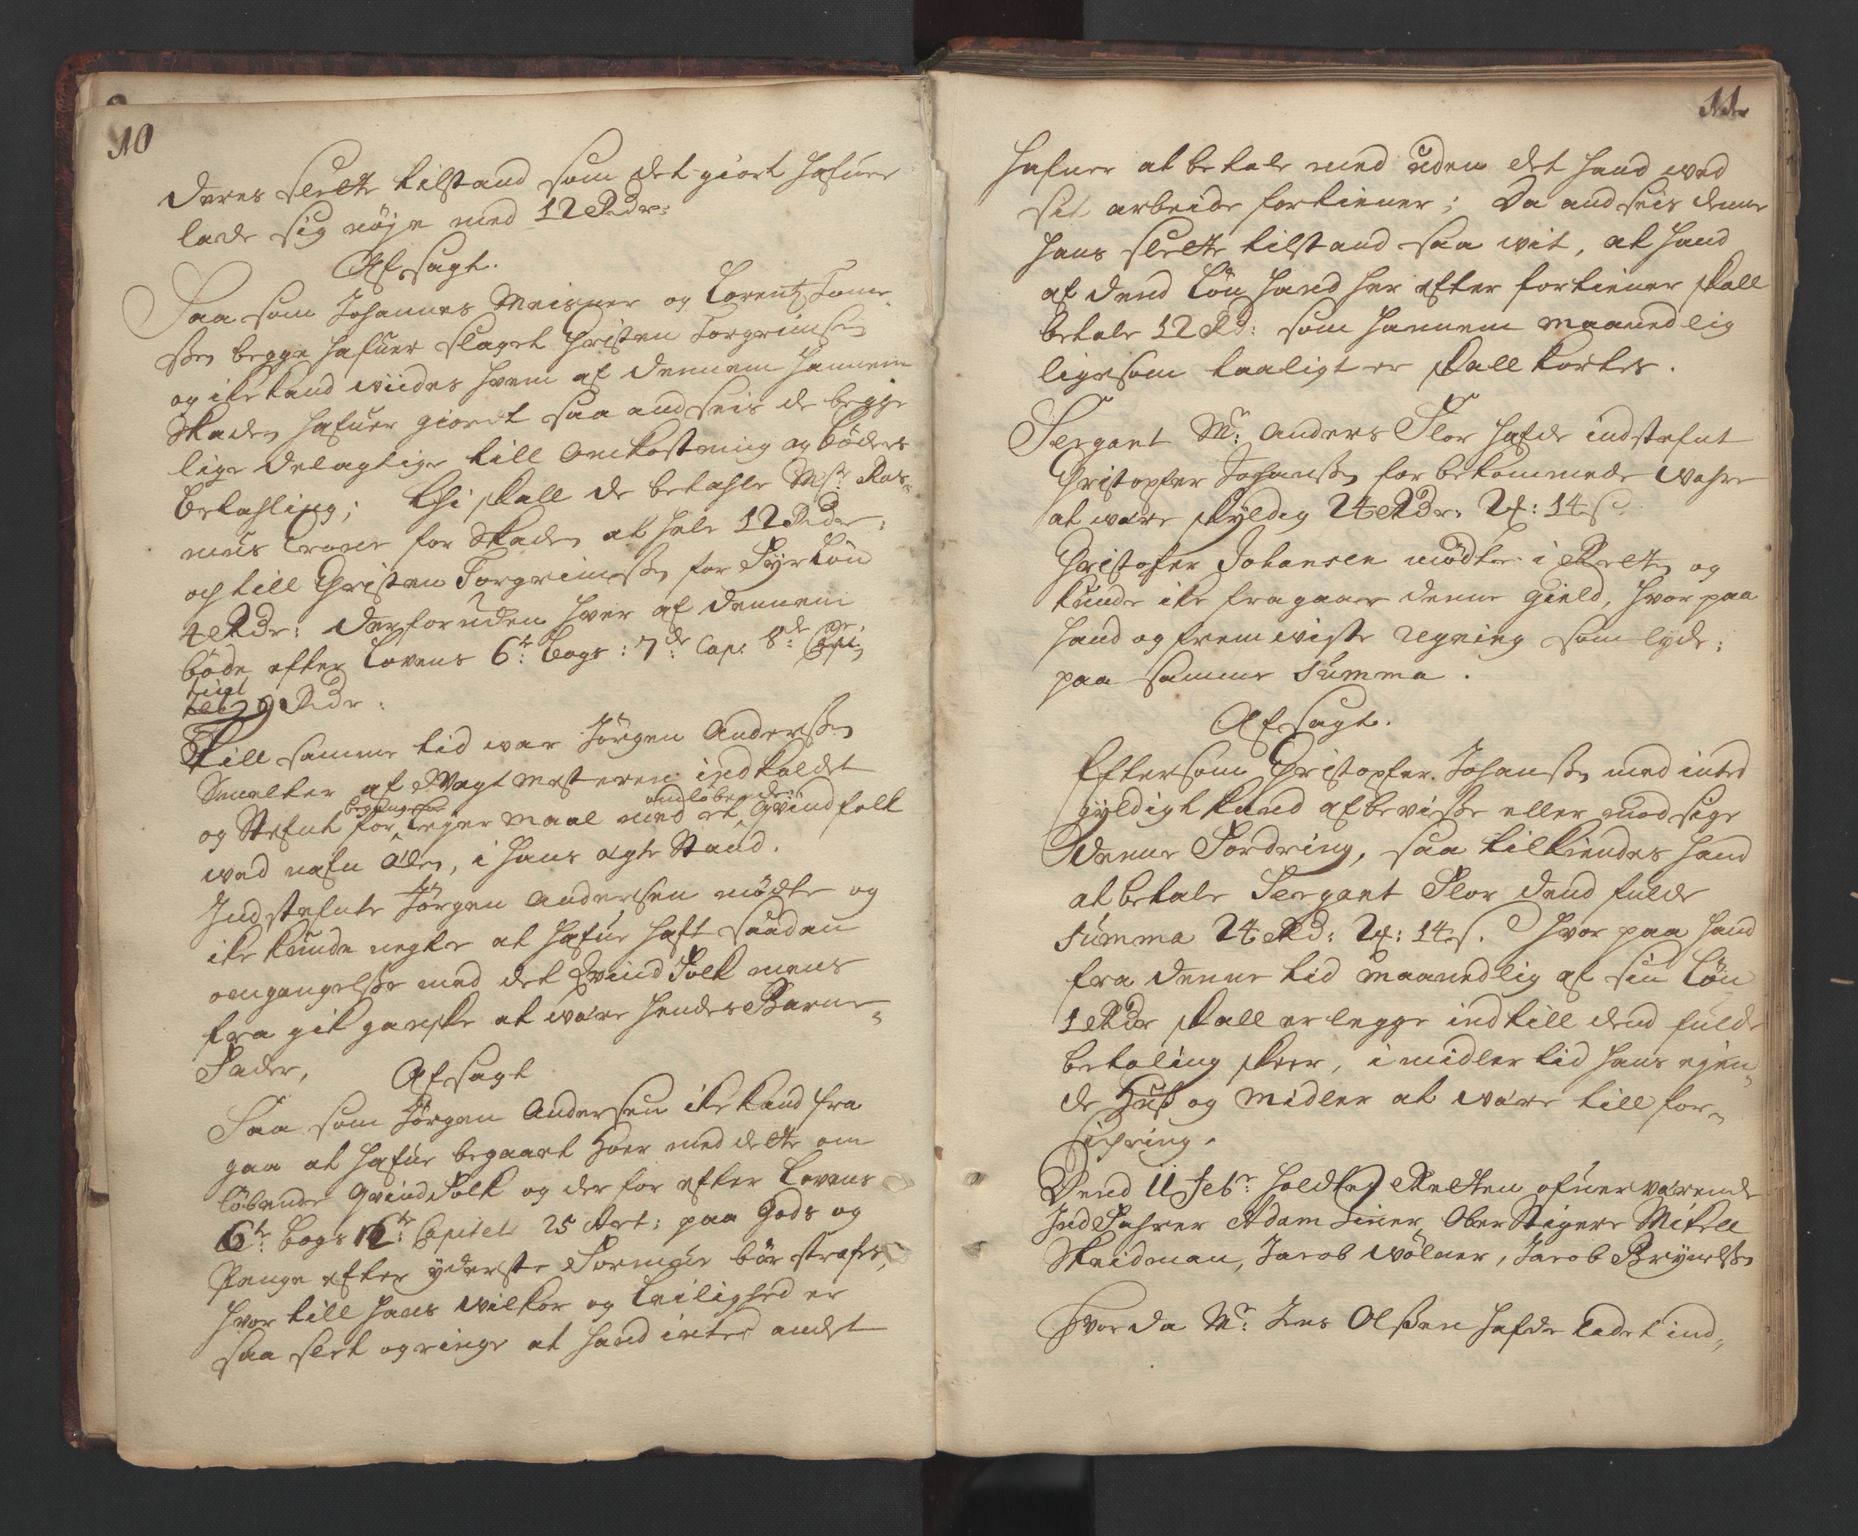 10
deres slette tilstand som det giort hafuer
lade sig nøje med 12 Rdr:
Afsagt.
Saa som Johannes Meisner og Lorentz Tom-
ßen begge hafuer slaget Christen Torgrimsen
og ike kand wiides hvem af dennem hannem
Skaden hafuer giordt saa andseis de begge
lige delagtige till Omkostning og bøders
betahling; Thi skall de betahle Mstr: Ras-
mus Crone for Skaden at hele 12 Rdr:
och till Christen Torgrimßen for Syeløn
4 Rdr: derforuden hver af dennem
bøde efter Lovens 6te: bogs: 7de: Cap: 8de:
9 Rdr:
Till samme tid war Jørgen Anderßen
Smelter af Wagtmesteren indkaldet
begangen omløbende
og Stefnt for Leyermaal med et Qvindfolk
wed nafn Ales, i hans ægte Stand.
Indstefnte Jørgen Andersen mødte og
ike kunde negte at hafue haft saadan
omgangelße med det Qvindfolk mens
fra gik ganske at være hendes Barne-
Fader,
Afsagt
Saa som Jørgen Andersen ike kand fra
gaa at hafue begaaet Hoer med dette om
løbende Qvindfolk og derfor efter Lovens
6te: bogs 12te: Capitel 25 Art: paa Gods og
Penge efter yderste Formue bør strafes,
hvor till hans wilkor og Leilighed er
saa slet og ringe at hand intet andet
11
hafuer at betale med uden det hand wed
sit arbeide fortiener; Da andseis denne
hans slette tilstand saa wit, at hand
af dend Løn hand her efter fortiener skall
betale 12 Rd: som hannem maanedlig
ligesom taaligt er skall kortes.
Sergant Mr: Anders Flor hafde indstefnt
Christopher Johanßen for bekommede Wahre
at være skyldig 24 Rdr: 2 : 14 s.
Christofer Johansen mødte i Retten og
kunde ike fragaae denne Gield, hvor paa
hand og fremwiste regning som lyde:
paa samme Summa.
Afsagt.
Eftersom Christopher Johanßen med inted
gyldigt kand afbeviße eller modsige
denne Fordring, saa tilkiendes hand
at betale Sergant Flor dend fulde
Summa 24 Rd: 2 : 14 s. Hvor paa hand
fra denne tid maanedlig af sin Løn
1 Rdr skall erlegge indtill dend fulde
betaling skeer, i midler tid hans ejen-
de Huß og Midler at være till for-
sichring.
Dend 11 Febr: holdtes Retten ofuerværende
Indfahrer Adam Siner, OberStigere Mikell
Skeidman, Jacob Wølner, Jacob Brynelßen
Hvor da Mr: Jens Olßen hafde ladet ind-